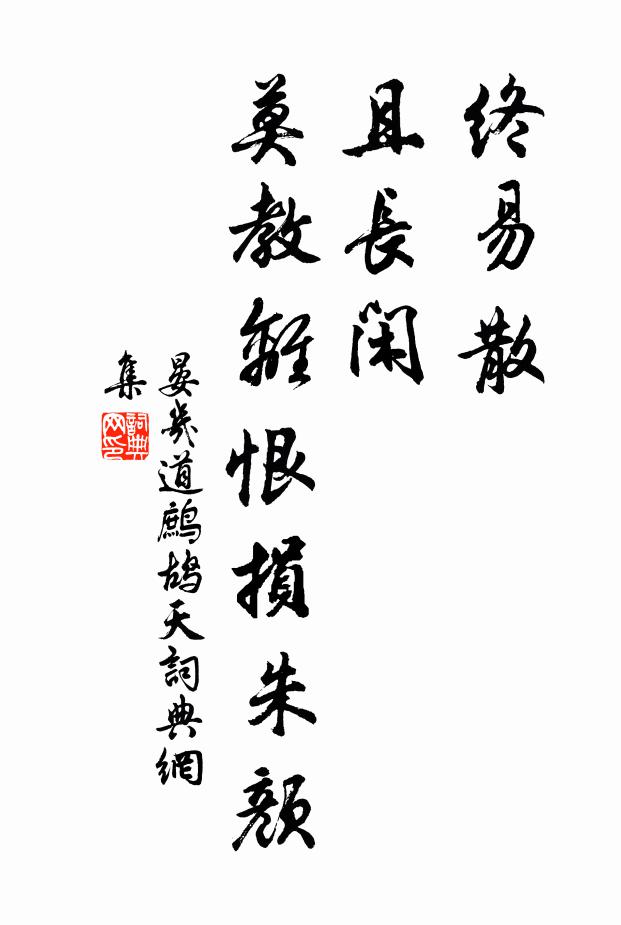 終易散
且長閑
莫教離恨損朱顏
晏幾道鷓鴣天詞典網
集
詞典
网印